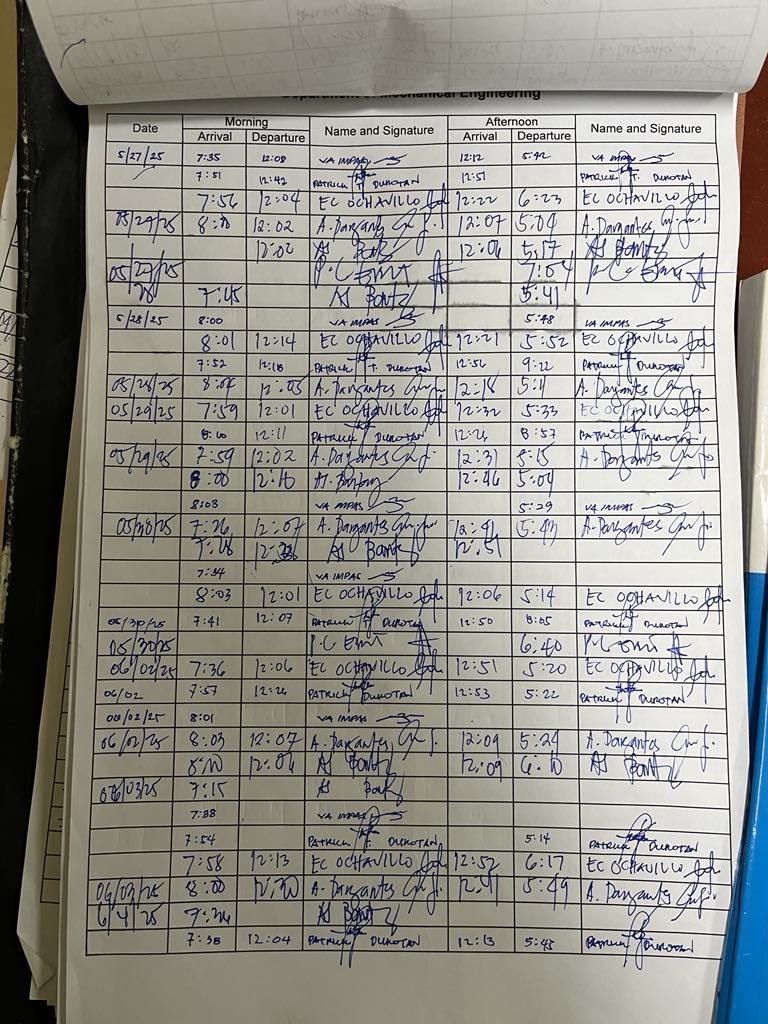 Department Mechanical Engineering
Date Morning Name and Signature Afternoon Name and Signature
Arrival Departure Arrival Departure
5/27/25 7:35 12:08 VA IMPAS 12:12 5:42 VA IMPAS
7:51 12:42 PATRICK T. DUROTAN 12:51 PATRICK T. DUROTAN
7:56 12:04 EC OCHAVILLO 12:22 6:23 EC OCHAVILLO
05/27/25 12:02 A. Dargantes 12:07 5:04 A. Dargantes
12:06 5:17
05/27/25 7:04
28 7:45 5:41
5/28/25 8:00 VA IMPAS 5:48 VA IMPAS
8:01 12:14 EC OCHAVILLO 12:21 5:52 EC OCHAVILLO
7:52 12:18 PATRICK T. DUROTAN 9:22 PATRICK T. DUROTAN
05/28/25 12:05 A. Dargantes 12:18 A. Dargantes
05/29/25 7:59 12:01 EC OCHAVILLO 12:32 5:33 EC OCHAVILLO
12:11 PATRICK T. DUROTAN 12:26 8:57 PATRICK DUROTAN
05/29/25 7:59 12:02 A. Dargantes 12:31 A. Dargantes
8:00 12:10 12:46 5:04
8:03 VA IMPAS 5:29 VA IMPAS
7:26 12:07 A. Dargantes 12:41 5:43 A. Dargantes
7:28 12:51
7:34 VA IMPAS
8:03 12:01 EC OCHAVILLO 12:06 5:14 EC OCHAVILLO
05/30/25 7:41 12:07 PATRICK T. DUROTAN 12:50 8:05 PATRICK T. DUROTAN
05/30/25 6:40
06/02/25 7:36 12:06 EC OCHAVILLO 12:51 5:20 EC OCHAVILLO
06/02 7:57 12:26 PATRICK DUROTAN 12:53 5:22 PATRICK DUROTAN
06/02/25 8:01 VA IMPAS
06/02/25 8:03 12:07 A. Dargantes 12:09 5:24 A. Dargantes
8:10 12:06 12:09 6:10
06/03/25 7:15
7:38 VA IMPAS
7:54 PATRICK T. DUROTAN 5:14 PATRICK DUROTAN
7:58 12:13 EC OCHAVILLO 12:52 6:17 EC OCHAVILLO
06/03/25 8:00 12:30 A. Dargantes 12:41 5:49 A. Dargantes
6/4/25 7:26
7:38 12:04 PATRICK T. DUROTAN 12:13 5:43 PATRICK DUROTAN